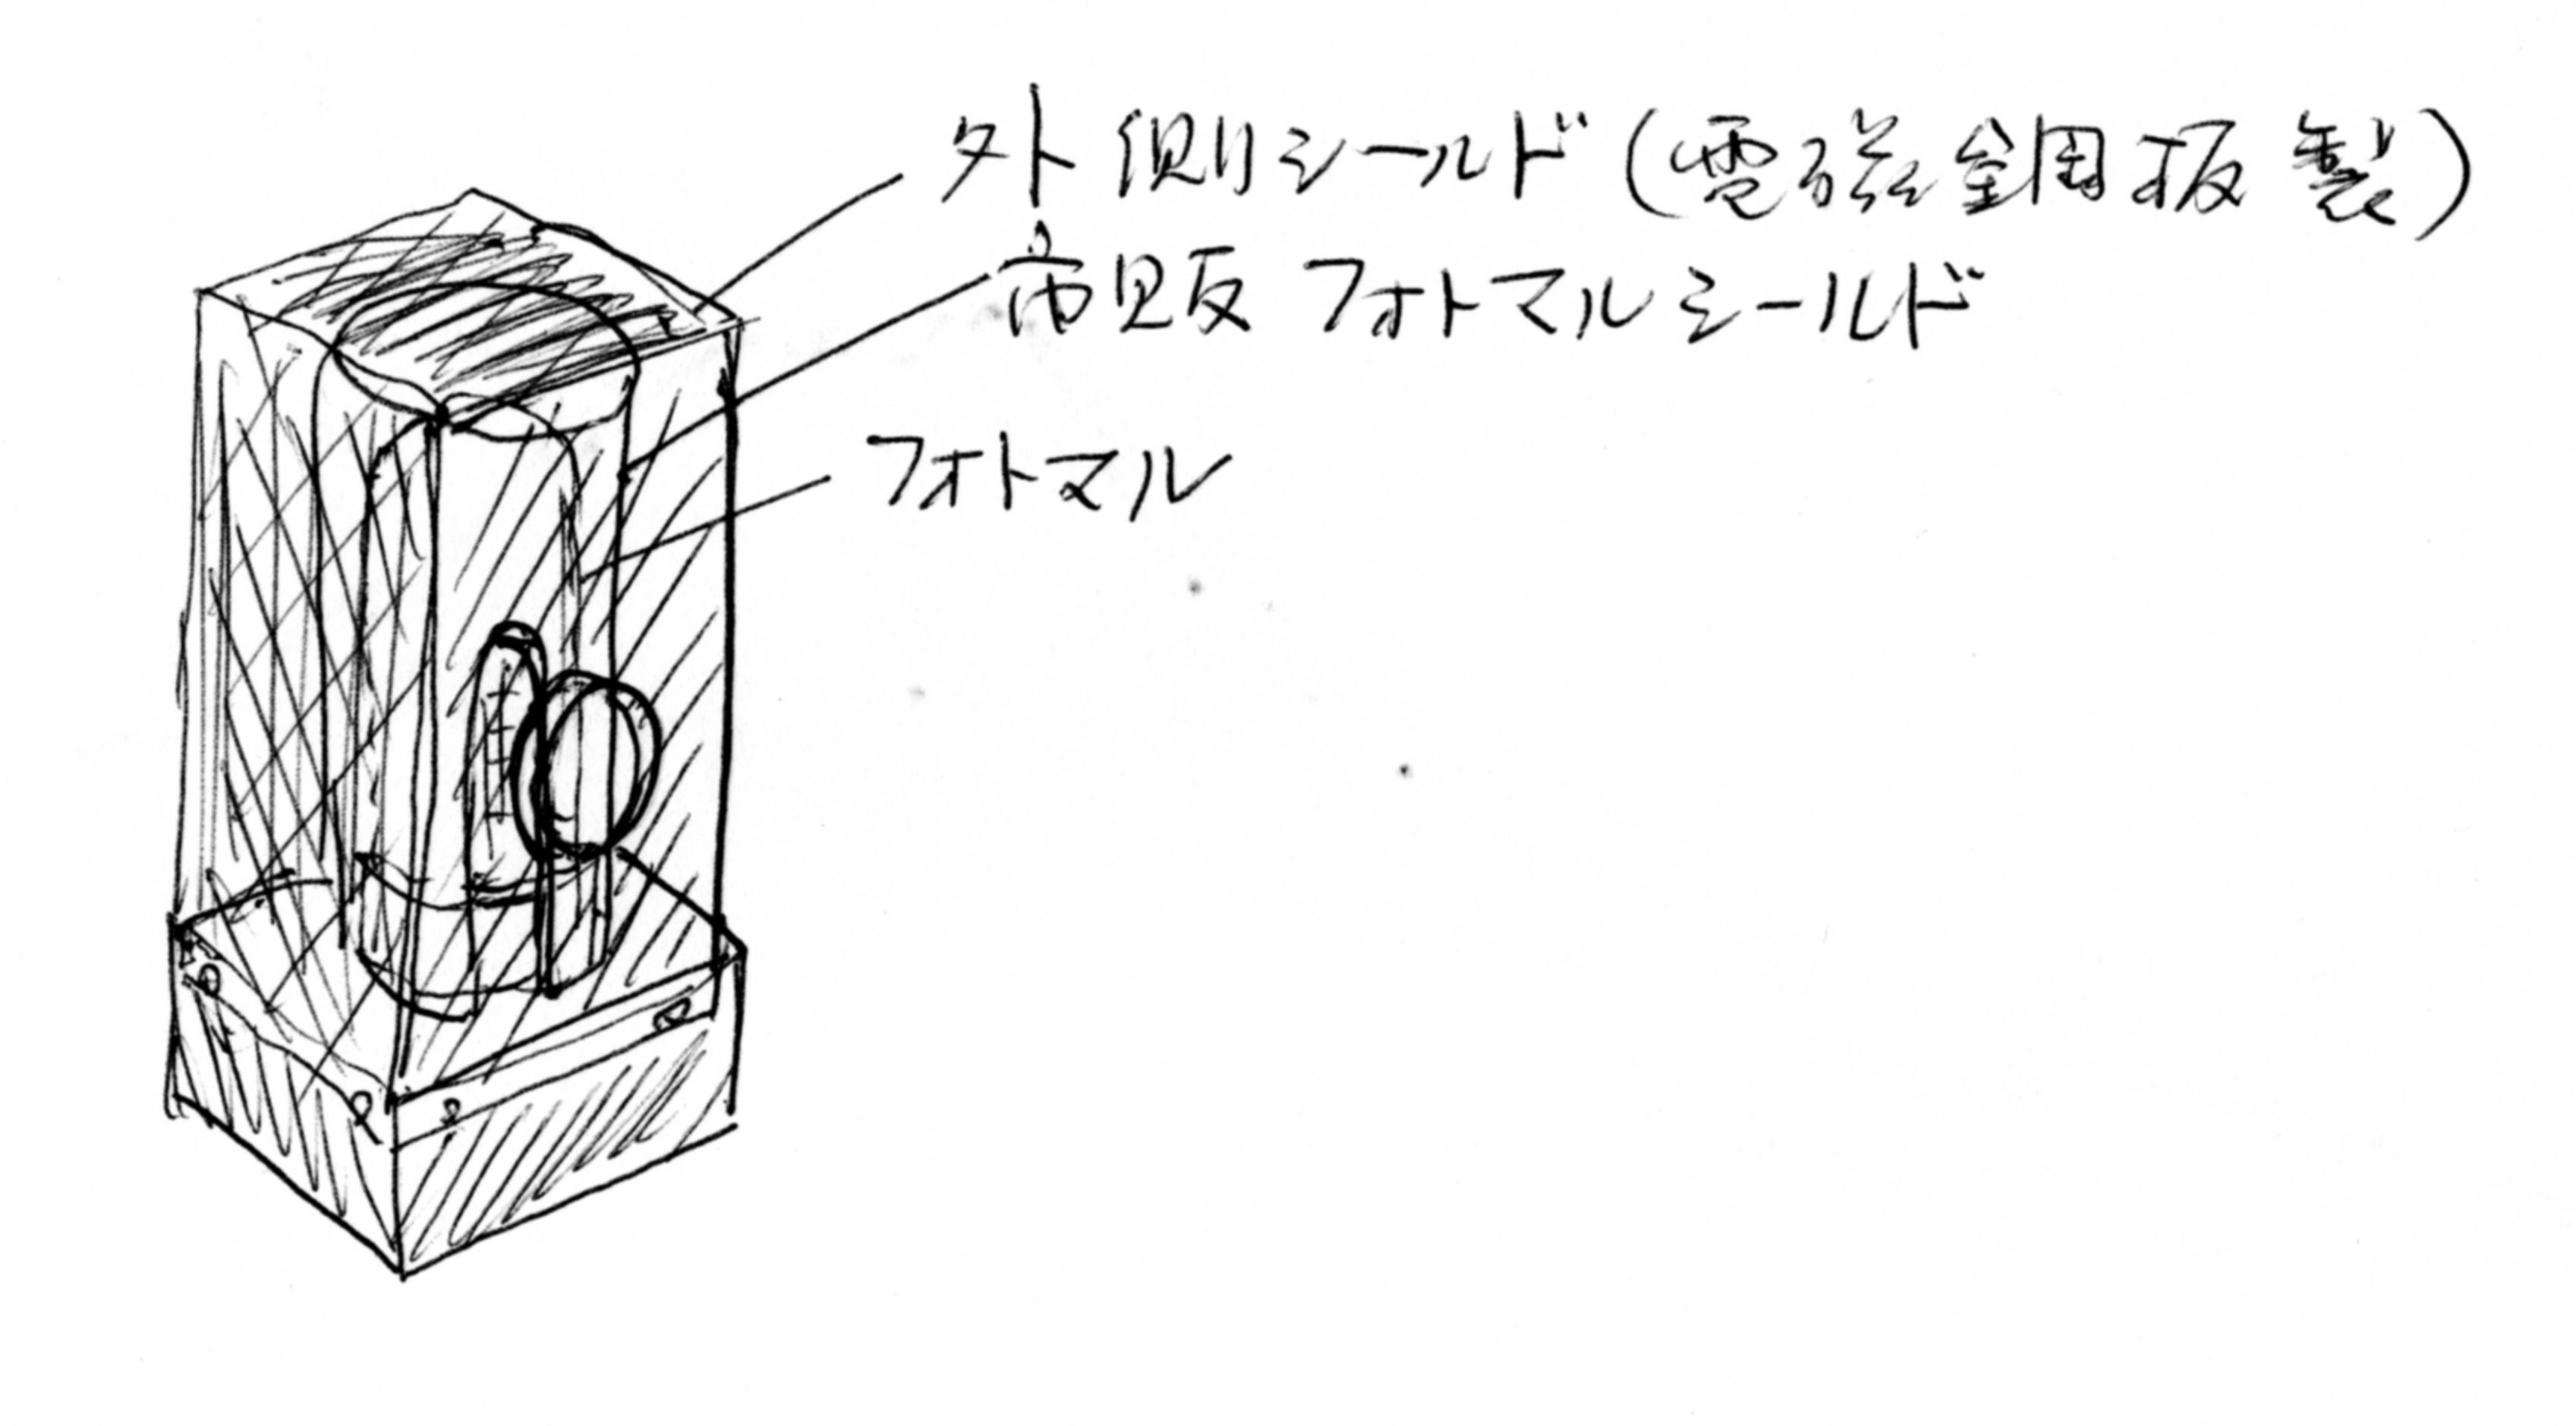 外側シールド(電磁鋼板製)
市販フォトマルシールド
フォトマル